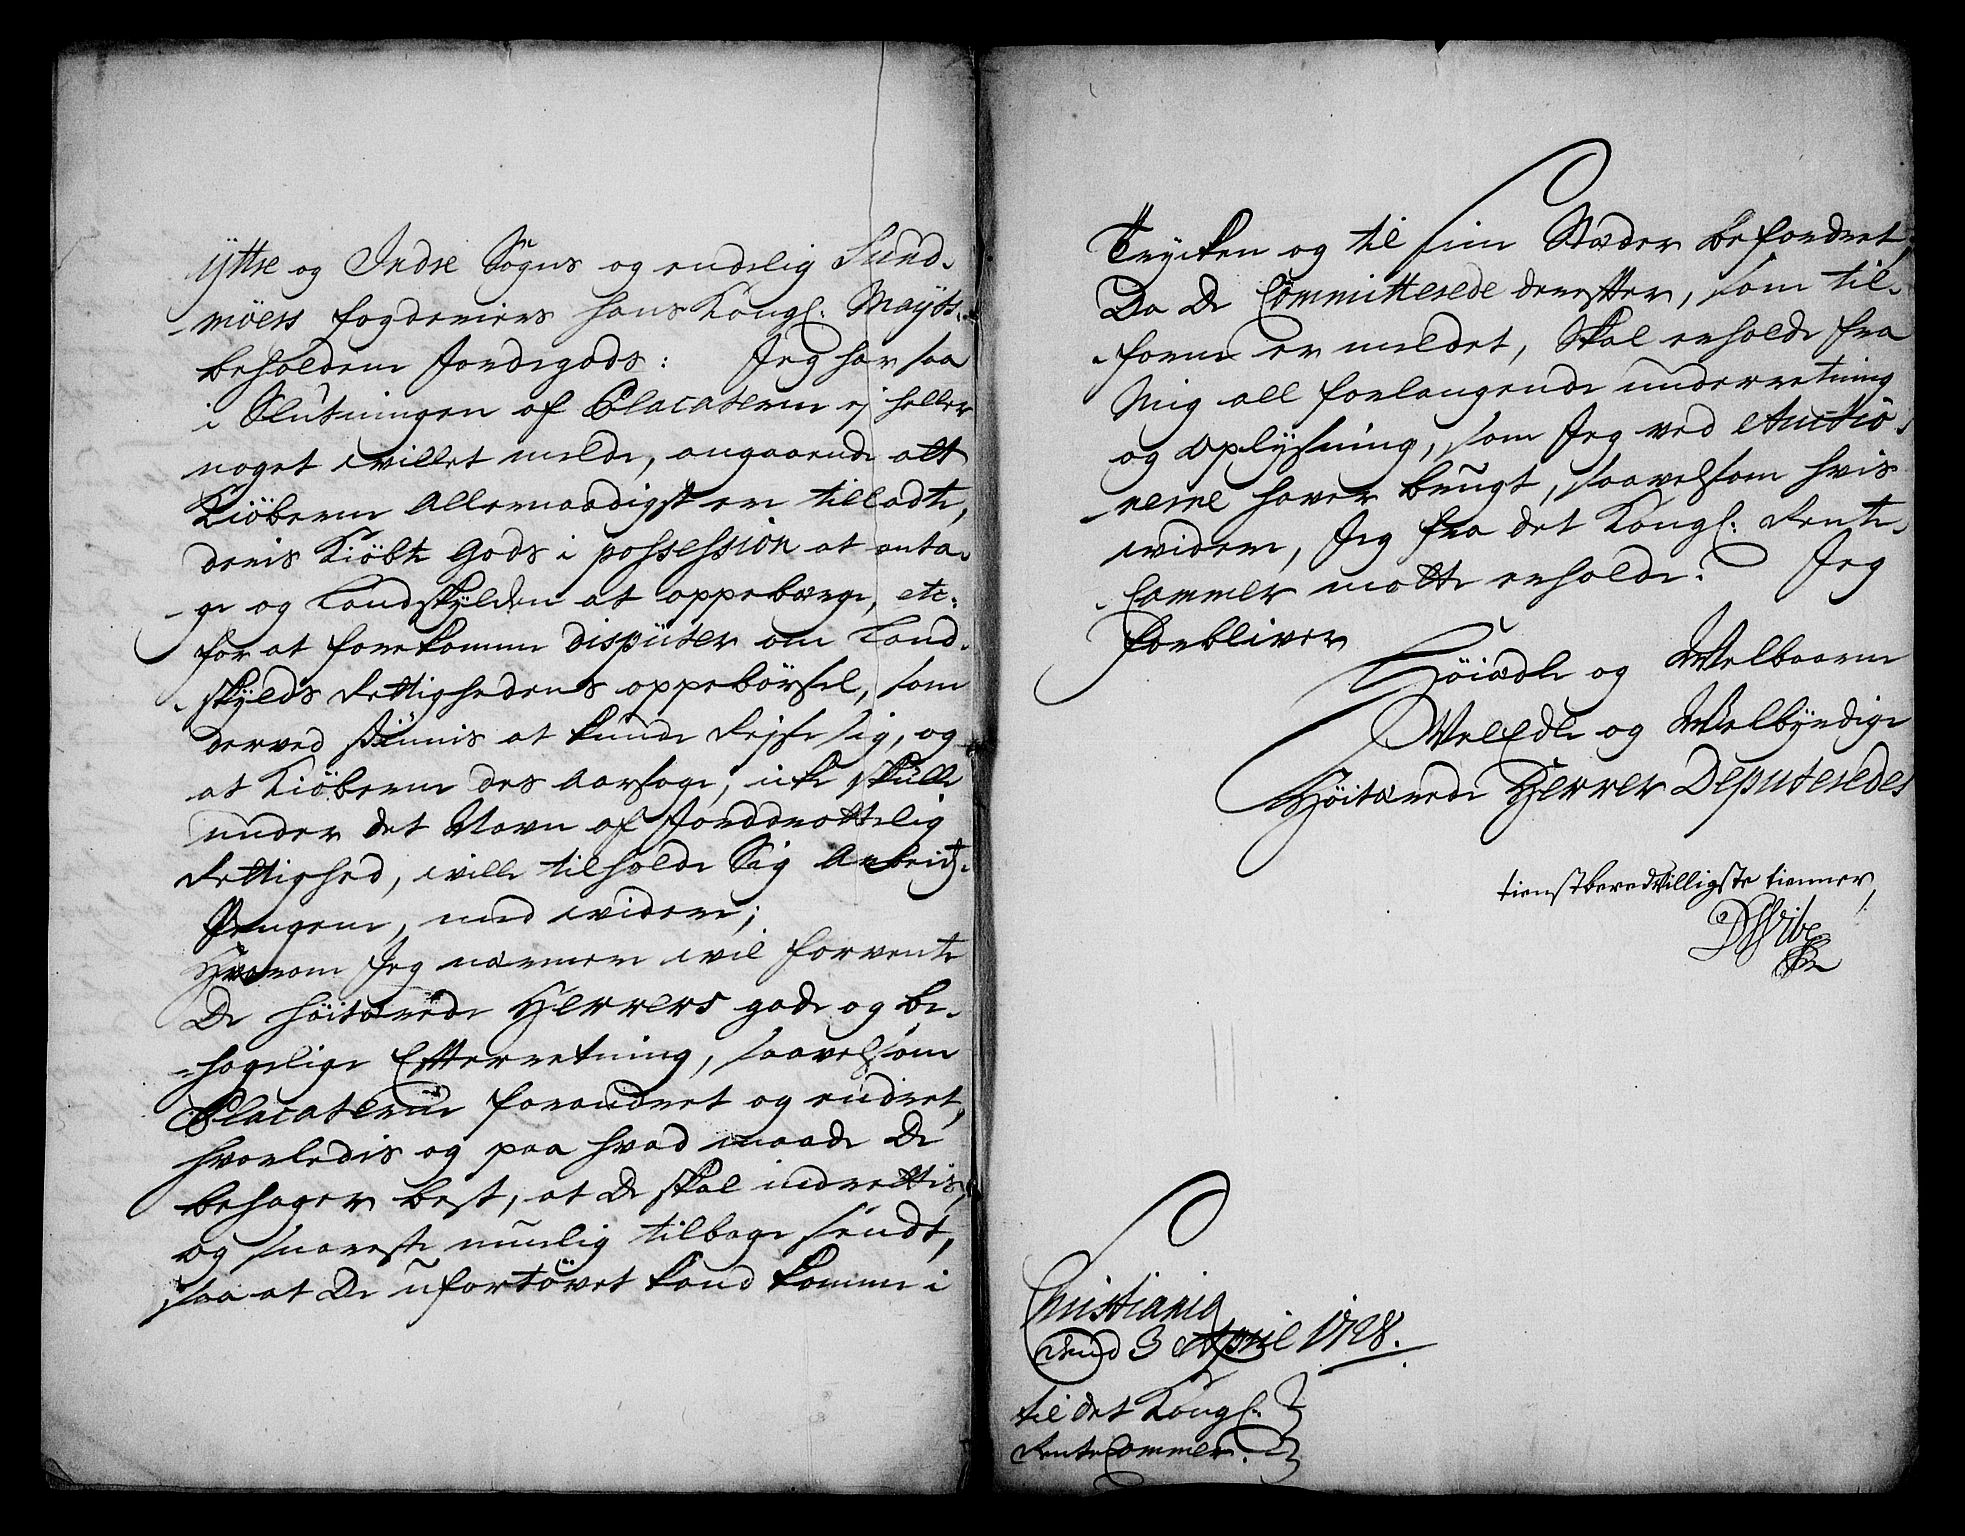 Yttre og Indre Sogns og endelig Sund-
möers fogderiers hans Kongl: Mayts.
beholdene Jordegods: Jeg har saa
i Slutningen af Placaterne ej heller
noget willet melde, angaaende att
Kiöberne Allernaadigst er tilladte,
deris Kiöbte Gods i possession at anta-
ge og Landskÿlden at oppebærge, etc:
for at forekomme dispüter om Land-
skÿlds Rettighedens oppebörsel, som
derved siünis at kunde Rejse sig, og
at Kiöberne des aarsage, icke skulle
under det Navn af Jorddrottelig
Rettighed, wille tilholde Sig Arbeids-
Pengene, med widere;
Hvorom Jeg nærmere wil forvente
De höitærede Herrers gode og be-
hagelige Efterretning, saavelsom
Placaterne forandret og endret,
hvorledis og paa hvad maade De
behager best, at De skal indrettis,
og snareste muelig tilbage sendt,
saa at De ufortövet kand komme i
Trycken og til sine Stæder befordret,
Da De Committerede derefter, som til-
forne er meldet, Skal erholde fra
Mig all forlangende underretning
og oplysning, som Jeg ved Auctio-
nerne haver brugt, saavelsom hvis
widere, Jeg fra det Kongl. Rente-
Cammer motte erholde. Jeg
forbliver
Höiædle og Welbaarne
VelEdle og Welbÿrdige
Höitærede Herrer Deputeredes
tienstberedvilligste tienner,
DVibe
Christiania
dend 3 April 1728.
til det Kongl:
RenteCammer.